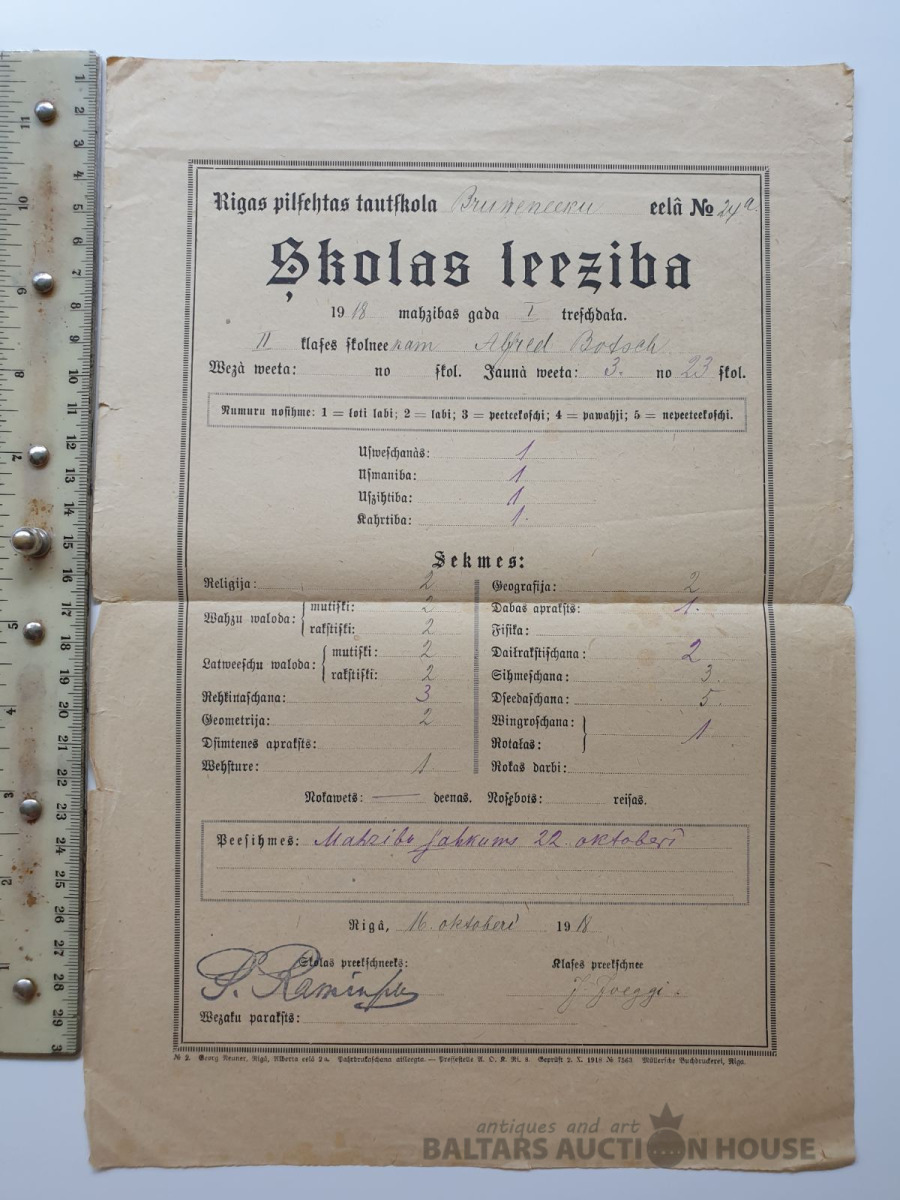 Rigas pilsehtas tautskola Bruneneeku eelâ № 24a
Skolas leeziba
1918 mahzibas gada I treschdaļa.
II klases skolneekam Alfred Botsch
Wezà weeta: no skol. Jaunà weeta: 3. no 23 skol.
Numuru nosihme: 1 = ļoti labi; 2 = labi; 3 = peeteekoschi; 4 = pawahji; 5 = nepeeteekoschi.
Usweschanàs: 1
Usmaniba: 1
Uszihtiba: 1
Kahrtiba: 1.
Sekmes:
Religija: 2
Wahzu waloda: mutiski: 2
rakstiski: 2
Latweeschu waloda: mutiski: 2
rakstiski: 2
Rehkinaschana: 3
Geometrija: 2
Dsimtenes apraksts:
Wehsture: 1
Geografija: 2
Dabas apraksts: 1.
Fisika:
Daiļrakstischana: 2
Sihmeschana: 3.
Dseedaschana: 5.
Wingroschana:
Rotaļas: 1
Rokas darbi:
Nokawets: — deenas. Noszbots: reisas.
Peesihmes: Mahzibu sahkums 22. oktoberi
Rigâ, 16. oktoberi 1918
Skolas preekschneeks: Klases preekschnee
Wezaku paraksts:
№ 2. Georg Neuner, Rigâ, Alberta eelâ 2a. Pahrdrukaschana aisleegta. — Pressestelle A. O. K. Ri. 8. Geprüft 2. X. 1918 № 7563 Müllersche Buchdruckerei, Riga.
antiques and art
BALTARS AUCTION HOUSE